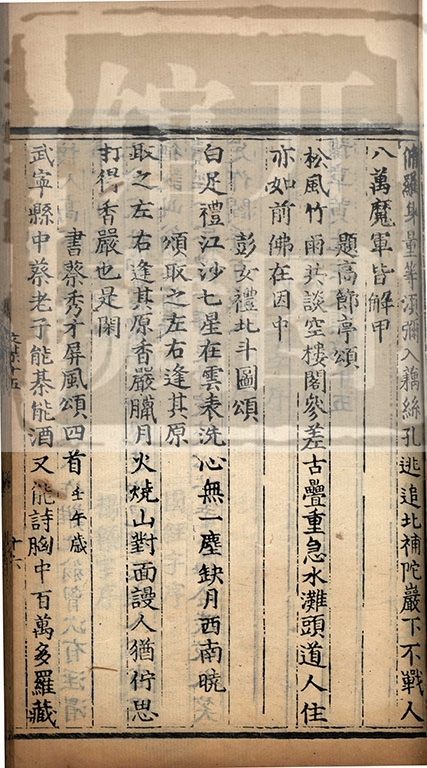 脩羅身量等須彌入藕絲孔逃追北補陀巖下不戰人
八萬魔軍皆解甲
題高節亭頌
松風竹雨共談空樓閣參差古疊重急水灘頭道人住
亦如前佛在因中
彭女禮北斗圖頌
白足禮江沙七星在雲表洗心無一塵缺月西南曉
頌取之左右逢其原
取之左右逢其原香嚴臘月火燒山對面謾人猶佇思
打得香嚴也是閑
書蔡秀才屏風頌四首 壬午歲
武寧縣中蔡老子能棊能酒又能詩胸中百萬多羅藏
十六